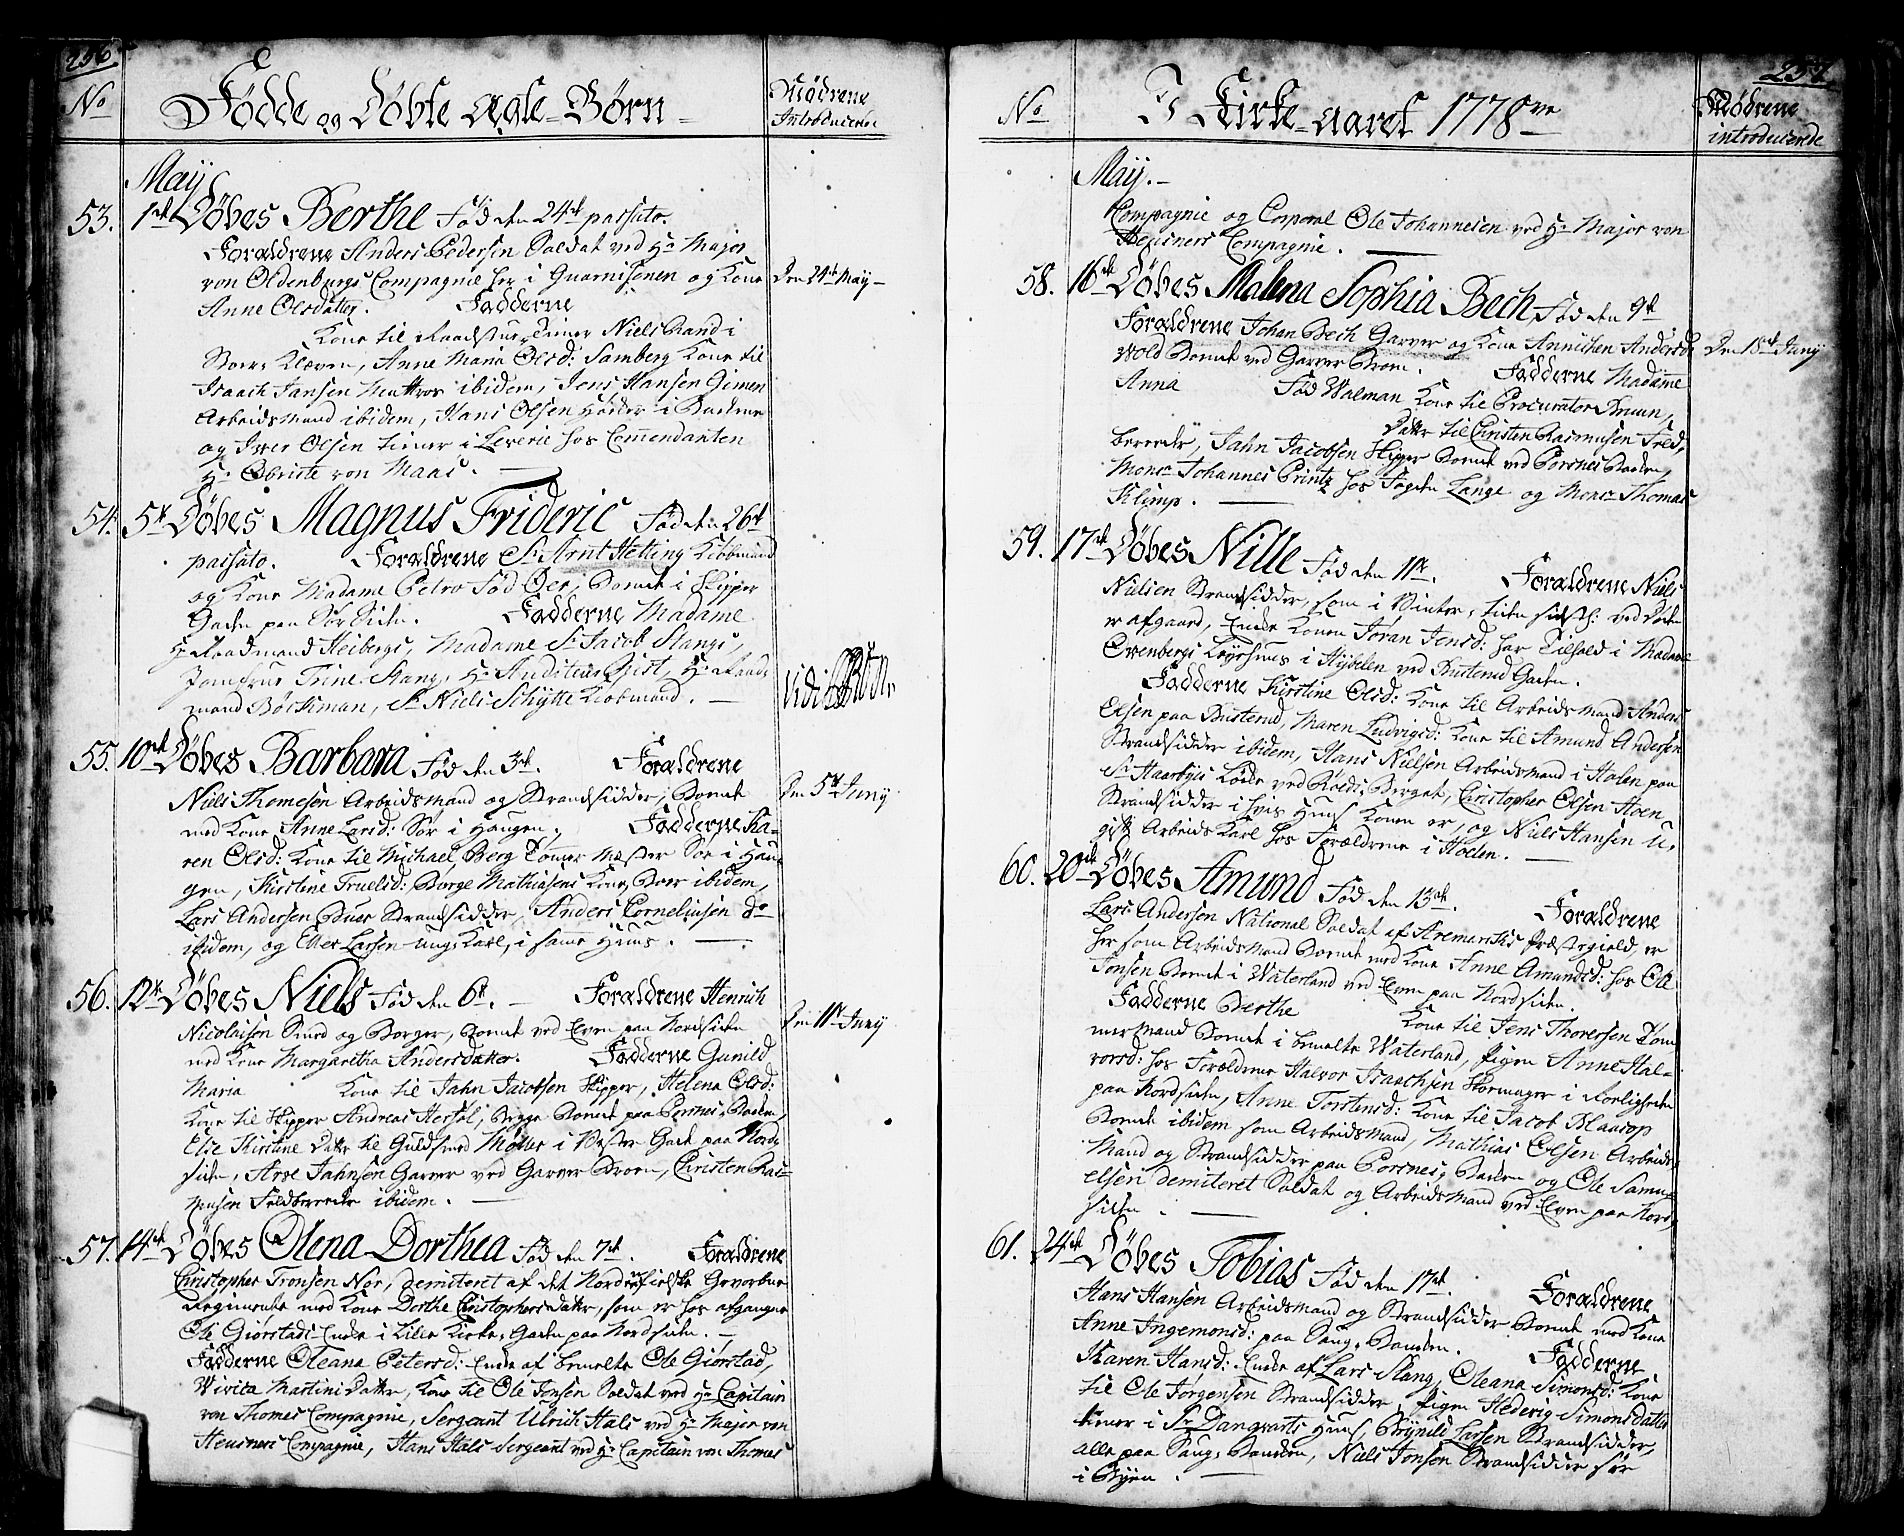 256
No
Fødde og Døbte Ægte-Børn
Mødrene
Introducerede
May
53. 1ste Døbes Berthe Fød den 24de passato.
Forældrene Anders Pedersen Soldat ved Hr Major
von Oldenburgs Compagnie her i Guarnisonen og Kone
Den 24de May
Anne Olsdatter. Fadderne
Kone til Raadstue Tiener Niels Rand i
Kleven, Anne Maria Olsd: Samberg Kone til
Isaach Jansen Mattros ibidem, Jens Hansen Gimen
Arbeidsmand ibidem, Hans Olsen i Bakken
og Iver Olsen tiener i Leverie hos Commendanten
Hr Obriste von Maas.
54. 5te Døbes Magnus Frideric Fød den 26de
passato. Forældrene Sr Arnt Hetting Kiøbmand
og Kone Madame Petro Fød Boende i Skipper
Gaden paa Sør Siden. Fadderne Madame
Hr Raadmand Heibergs, Madame Sr Jacob Stangs,
Jomfrue Trine Stang, Hr Auditeur Gist, Hr Raad-
mand Böckman, Sr Niels Schytte Kiøbmand.
Vidi
55. 10de Døbes Barbara Fød den 3de. Forældrene
Niels Thomesen Arbeidsmand og Strandsidder, Boende
Den 5te Juny
med Kone Anne Larsd: Sør i Haugen. Fadderne Ka-
ren Olsd: Kone til Michael Berg Tømmer Mester Sør i Hau-
gen, Kirstine Truelsd: Børge Mathiasens Kone Boer ibidem,
Lars Andersen Buer Strandsidder, Anders Corneliusen do
ibidem, og Elles Larsen ung Karl, i samme Huus.
56. 12te Døbes Niels Fød den 6te. Forældrene Henrich
Nicolaisen Smed og Borger, Boende ved Elven paa Nordsiden
Den 11te Juny
med Kone Margaretha Andersdatter. Fadderne Gunild
Maria Kone til Jahn Jacobsen Skipper, Helena Olsd:
Kone til Skipper Andreas Hertel, begge Boende paa Porsnes Bakken,
Else Kirstine Datter til Guldsmed Møller i Vester Gade paa Nord-
siden, Arve Jahnsen Garver ved Garver Broen, Christen Ras-
musen Feldbereeder ibidem.
57. 14de Døbes Olena Dorthea Fød den 7de. Forældrene
Christopher Tronsen Nor, demiteret af det Nordenfielske Gevorbne
Regimente med Kone Dorthe Christophersdatter, som er hos afgangne
Ole Giørstads Enke i Lille Kirke Gaden paa Nordsiden.
Fadderne Oleana Petersd: Enke af bemelte Ole Giørstad,
Wivika Martinsdatter, Kone til Ole Jonsen Soldat ved Hr Capitain
von Thomes Compagnie, Sergeant Ulrich Hals ved Hr Major von
Heusners Compagnie, Hans Hals Sergeant ved Hr Capitain von Thomes
257
No
I Kirke-aaret 1778ve
Mødrene
introducerede
Maij.
Compagnie og Corporal Ole Johannesen ved Hr Major von
Heusners Compagnie.
58. 16de Døbes Malena Sophia Bech Fød den 9de
Forældrene Johan Bech Garver og Kone Annichen Andersd:
Den 18de Juny
Wold Boende ved Garver Broen. Fadderne Madame
Anna Fød Walman Kone til Procurator Bruun,
Datter til Christen Rasmusen Feld-
bereeder, Jahn Jacobsen Skipper Boende ved Porsnes Bakken,
Monsr Johannes Printz hos Fogden Lange og Monsr Thomas
Klimp.
59. 17de Døbes Nille Fød den 11te. Forældrene Niels
Nielsen Strandsidder, som i Vinter, siden sidst ved Døden
er afgaaed, Enke Konen Jøran Jensd: har Tilhold i Madame
Evenbergs Løyehuus i Hybelen ved Bustrud Gaden.
Fadderne Kirstine Olsd: Kone til Arbeidsmand Anders
Elsen paa Bustrud, Maren Ludvigsd: Kone til Amund Andersen
Strandsidder ibidem, Hans Nielsen Arbeidsmand i Hoelen paa
Sr Haarbyes Løkke ved Røeds Berget, Christopher Olsen Hoen
Strandsidder i hvis Huus Konen er, og Niels Hansen U-
gift Arbeids Karl hos Forældrene i Hoelen.
60. 20de Døbes Amund Fød den 13de. Forældrene
Lars Andersen National Soldat af Aremarchs Præstegield, er
her som Arbeidsmand Boende med Kone Anne Amundsd: hos Ole
Jonsen Boende i Waterland ved Elven paa Nordsiden
Fadderne Berthe Kone til Jens Thoresen Tøm-
mermand Boende i bemelte Waterland, Pigen Anne Hal-
vorsd: hos Forældrene Halvor Isachsen Skomager i
paa Nordsiden, Anne Torstensd: Kone til Jacob Blaarop
Boende ibidem som Arbeidsmand, Mathias Olsen Arbeids-
Mand og Strandsidder paa Porsnes Bakken og Ole Samu-
elsen demiteret Soldat og Arbeidsmand ved Elven paa Nord-
siden.
61. 24de Døbes Tobias Fød den 17de. Forældrene
Hans Hansen Arbeidsmand og Strandsidder Boende med Kone
Anne Ingemonsd: paa Saug Banken. Fadderne
Karen Hansd: Enke af Lars Stang, Oleana Simonsd: Kone
til Ole Jørgensen Strandsidder, Pigen Hedevig Simonsdatter
tiener i Sr Danqvarts Huus, Brynild Larsen Strandsidder,
alle paa Saug Banken, Niels Jonsen Strandsidder Sør
i Byen.